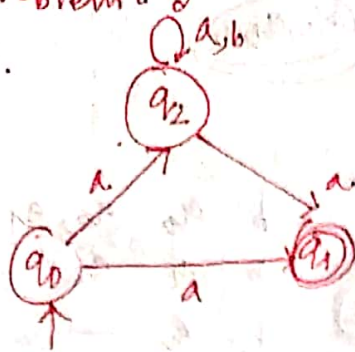 a,b
q2
a
a
q0
q1
a